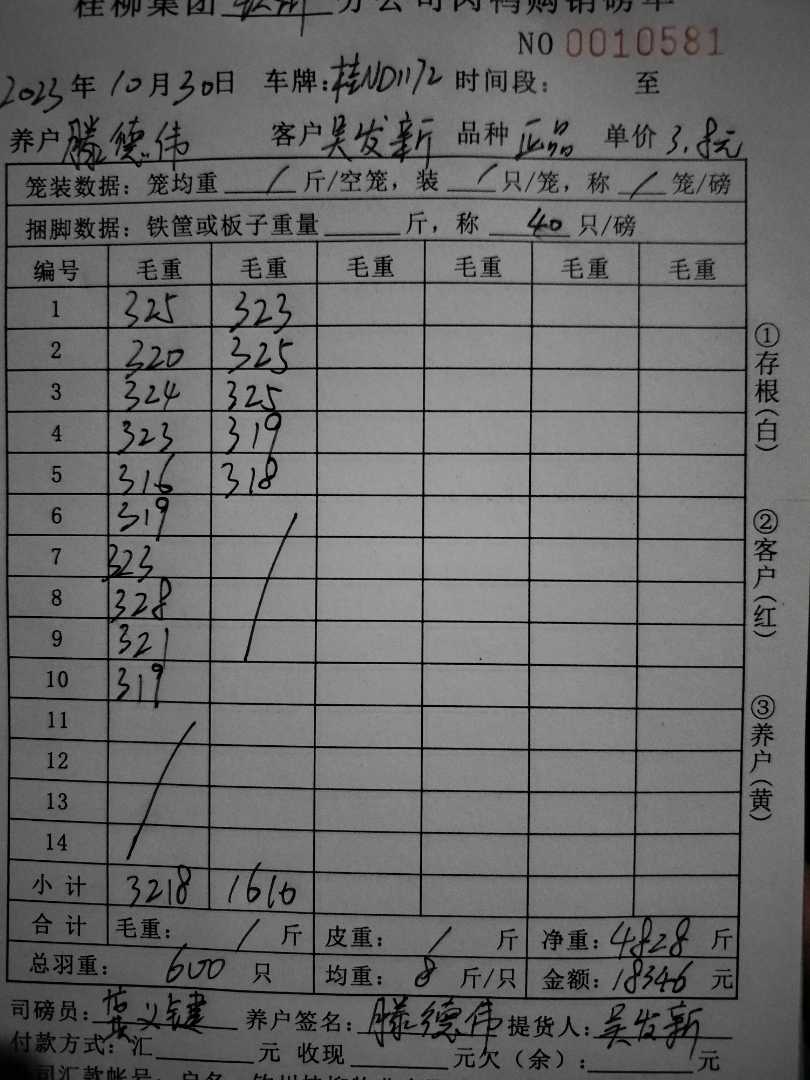 桂柳集团 钦州 分公司肉鸭购销磅单
NO 0010581
2023年10月30日 车牌:桂ND1172 时间段: 至
养户 滕德伟 客户 吴发新 品种 正品 单价 3.8元
笼装数据:笼均重 / 斤/空笼,装 / 只/笼,称 / 笼/磅
捆脚数据:铁筐或板子重量 斤,称 40 只/磅
编号 毛重 毛重 毛重 毛重 毛重 毛重
1 325 323
2 320 325
3 324 325
4 323 319
5 316 318
6 319
7 323
8 328
9 321
10 319
11
12
13
14
小计 3218 1610
合计 毛重: / 斤 皮重: / 斤 净重:4828 斤
总羽重: 600 只 均重: 8 斤/只 金额:18346 元
司磅员: 养户签名:滕德伟 提货人:吴发新
付款方式:汇 元 收现 元欠(余): 元
①存根(白)
②客户(红)
③养户(黄)